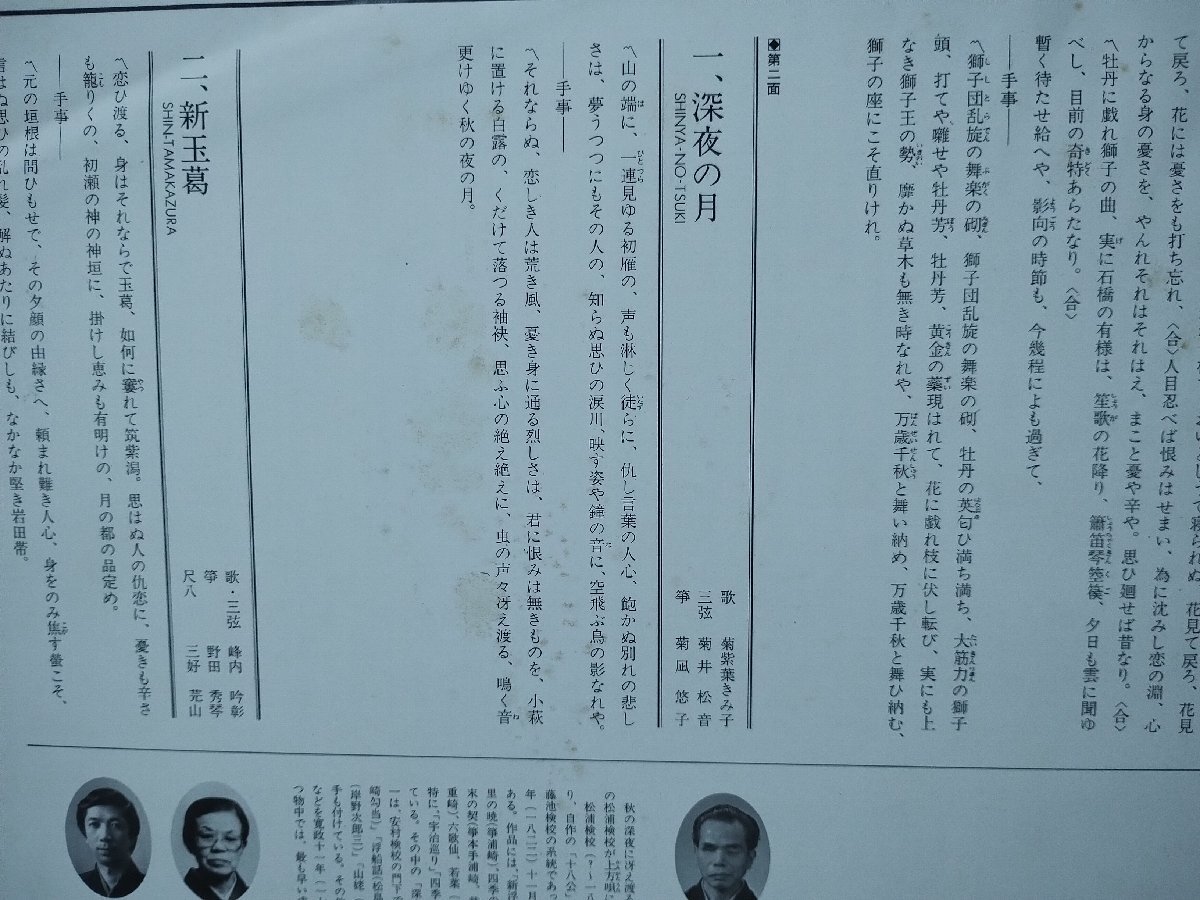 て戻ろ、花には憂さをも打ち忘れ、〈合〉人目忍べば恨みはせまい、為に沈みし恋の淵、心
からなる身の憂さを、やんれそれはそれはえ、まこと憂や辛や。思ひ廻せば昔なり。〈合〉
〽牡丹に戯れ獅子の曲、実に石橋の有様は、笙歌の花降り、簫笛琴箜篌、夕日も雲に聞ゆ
べし、目前の奇特あらたなり。〈合〉
暫く待たせ給へや、影向の時節も、今幾程によも過ぎて、
──手事──
〽獅子団乱旋の舞楽の砌、獅子団乱旋の舞楽の砌、牡丹の英匂ひ満ち満ち、大筋力の獅子
頭、打てや囃せや牡丹芳、牡丹芳、黄金の蘂現はれて、花に戯れ枝に伏し転び、実にも上
なき獅子王の勢、靡かぬ草木も無き時なれや、万歳千秋と舞い納め、万歳千秋と舞ひ納む、
獅子の座にこそ直りけれ。
◆第二面
一、深夜の月
SHINYA-NO-TSUKI
歌 菊紫葉きみ子
三弦 菊井松音
箏 菊凪悠子
〽山の端に、一連見ゆる初雁の、声も淋しく徒らに、仇し言葉の人心、飽かぬ別れの悲し
さは、夢うつつにもその人の、知らぬ思ひの涙川、映す姿や鐘の音に、空飛ぶ鳥の影なれや。
──手事──
〽それならぬ、恋しき人は荒き風、憂き身に通る烈しさは、君に恨みは無きものを、小萩
に置ける白露の、くだけて落つる袖袂、思ふ心の絶え絶えに、虫の声々冴え渡る、鳴く音
更けゆく秋の夜の月。
二、新玉葛
SHIN-TAMAKAZURA
歌・三弦 峰内吟彰
箏 野田秀琴
尺八 三好芫山
〽恋ひ渡る、身はそれならで玉葛、如何に窶れて筑紫潟。思はぬ人の仇恋に、憂きも辛さ
も籠りくの、初瀬の神の神垣に、掛けし恵みも有明けの、月の都の品定め。
──手事──
〽元の垣根は問ひもせで、その夕顔の由縁さへ、頼まれ難き人心、身をのみ焦す螢こそ、
言はぬ思ひの乱れ髪、解ぬあたりに結びしも、なかなか堅き岩田帯。
秋の深夜に冴え渡る
の松浦検校が上方唄に
松浦検校（？～一八
り、自作の「十八公」
藤池検校の系統であっ
年（一八二二）十一月
ある。作品には、「新浮
里の暁（箏浦崎）、四季の
末の契（箏本手浦崎、
重崎）、六歌仙、若菜（
特に、「宇治巡り」「四季
ている。その中の「深
一は、安村検校の門下で
崎勾当）」「浮船話（松島
（岸野次郎三）」「山姥（
手も付けている。その
などを寛政十一年（一
つ物中では、最も早い